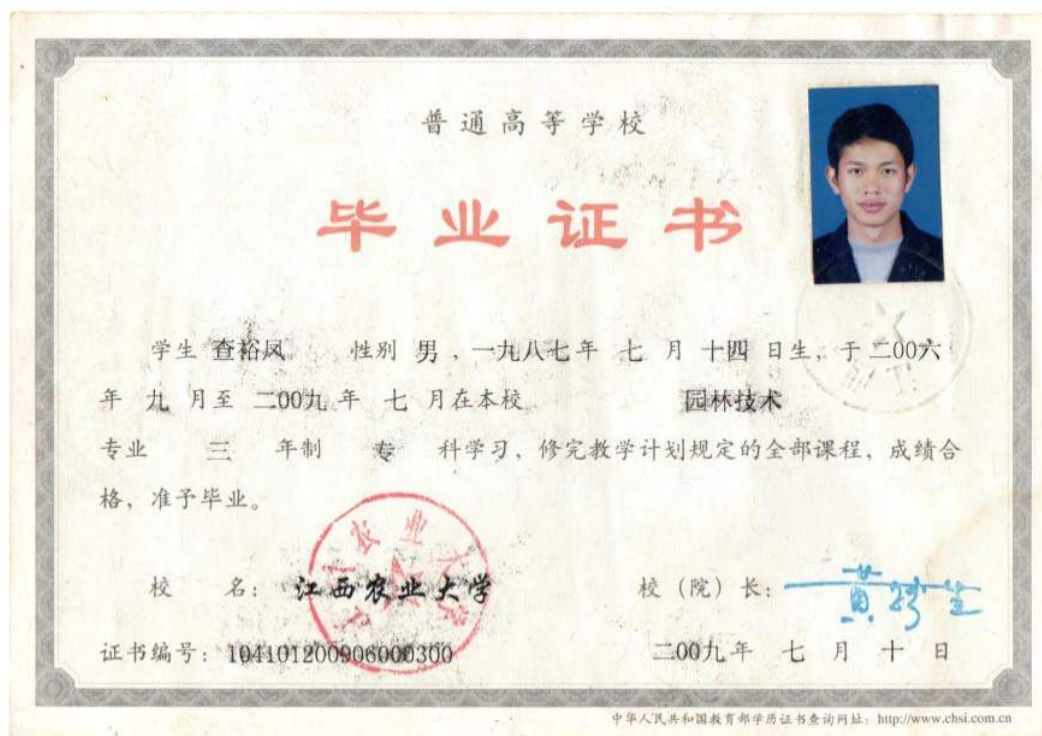 普通高等学校
毕业证书
学生 查裕凤 性别 男，一九八七年 七 月 十四 日生，于 二00六
年 九 月至 二00九 年 七 月在本校 园林技术
专业 三 年制 专 科学习，修完教学计划规定的全部课程，成绩合
格，准予毕业。
校 名：江西农业大学
校（院）长：
证书编号：104101200906000300
二00九年 七 月 十 日
中华人民共和国教育部学历证书查询网址：http://www.chsi.com.cn